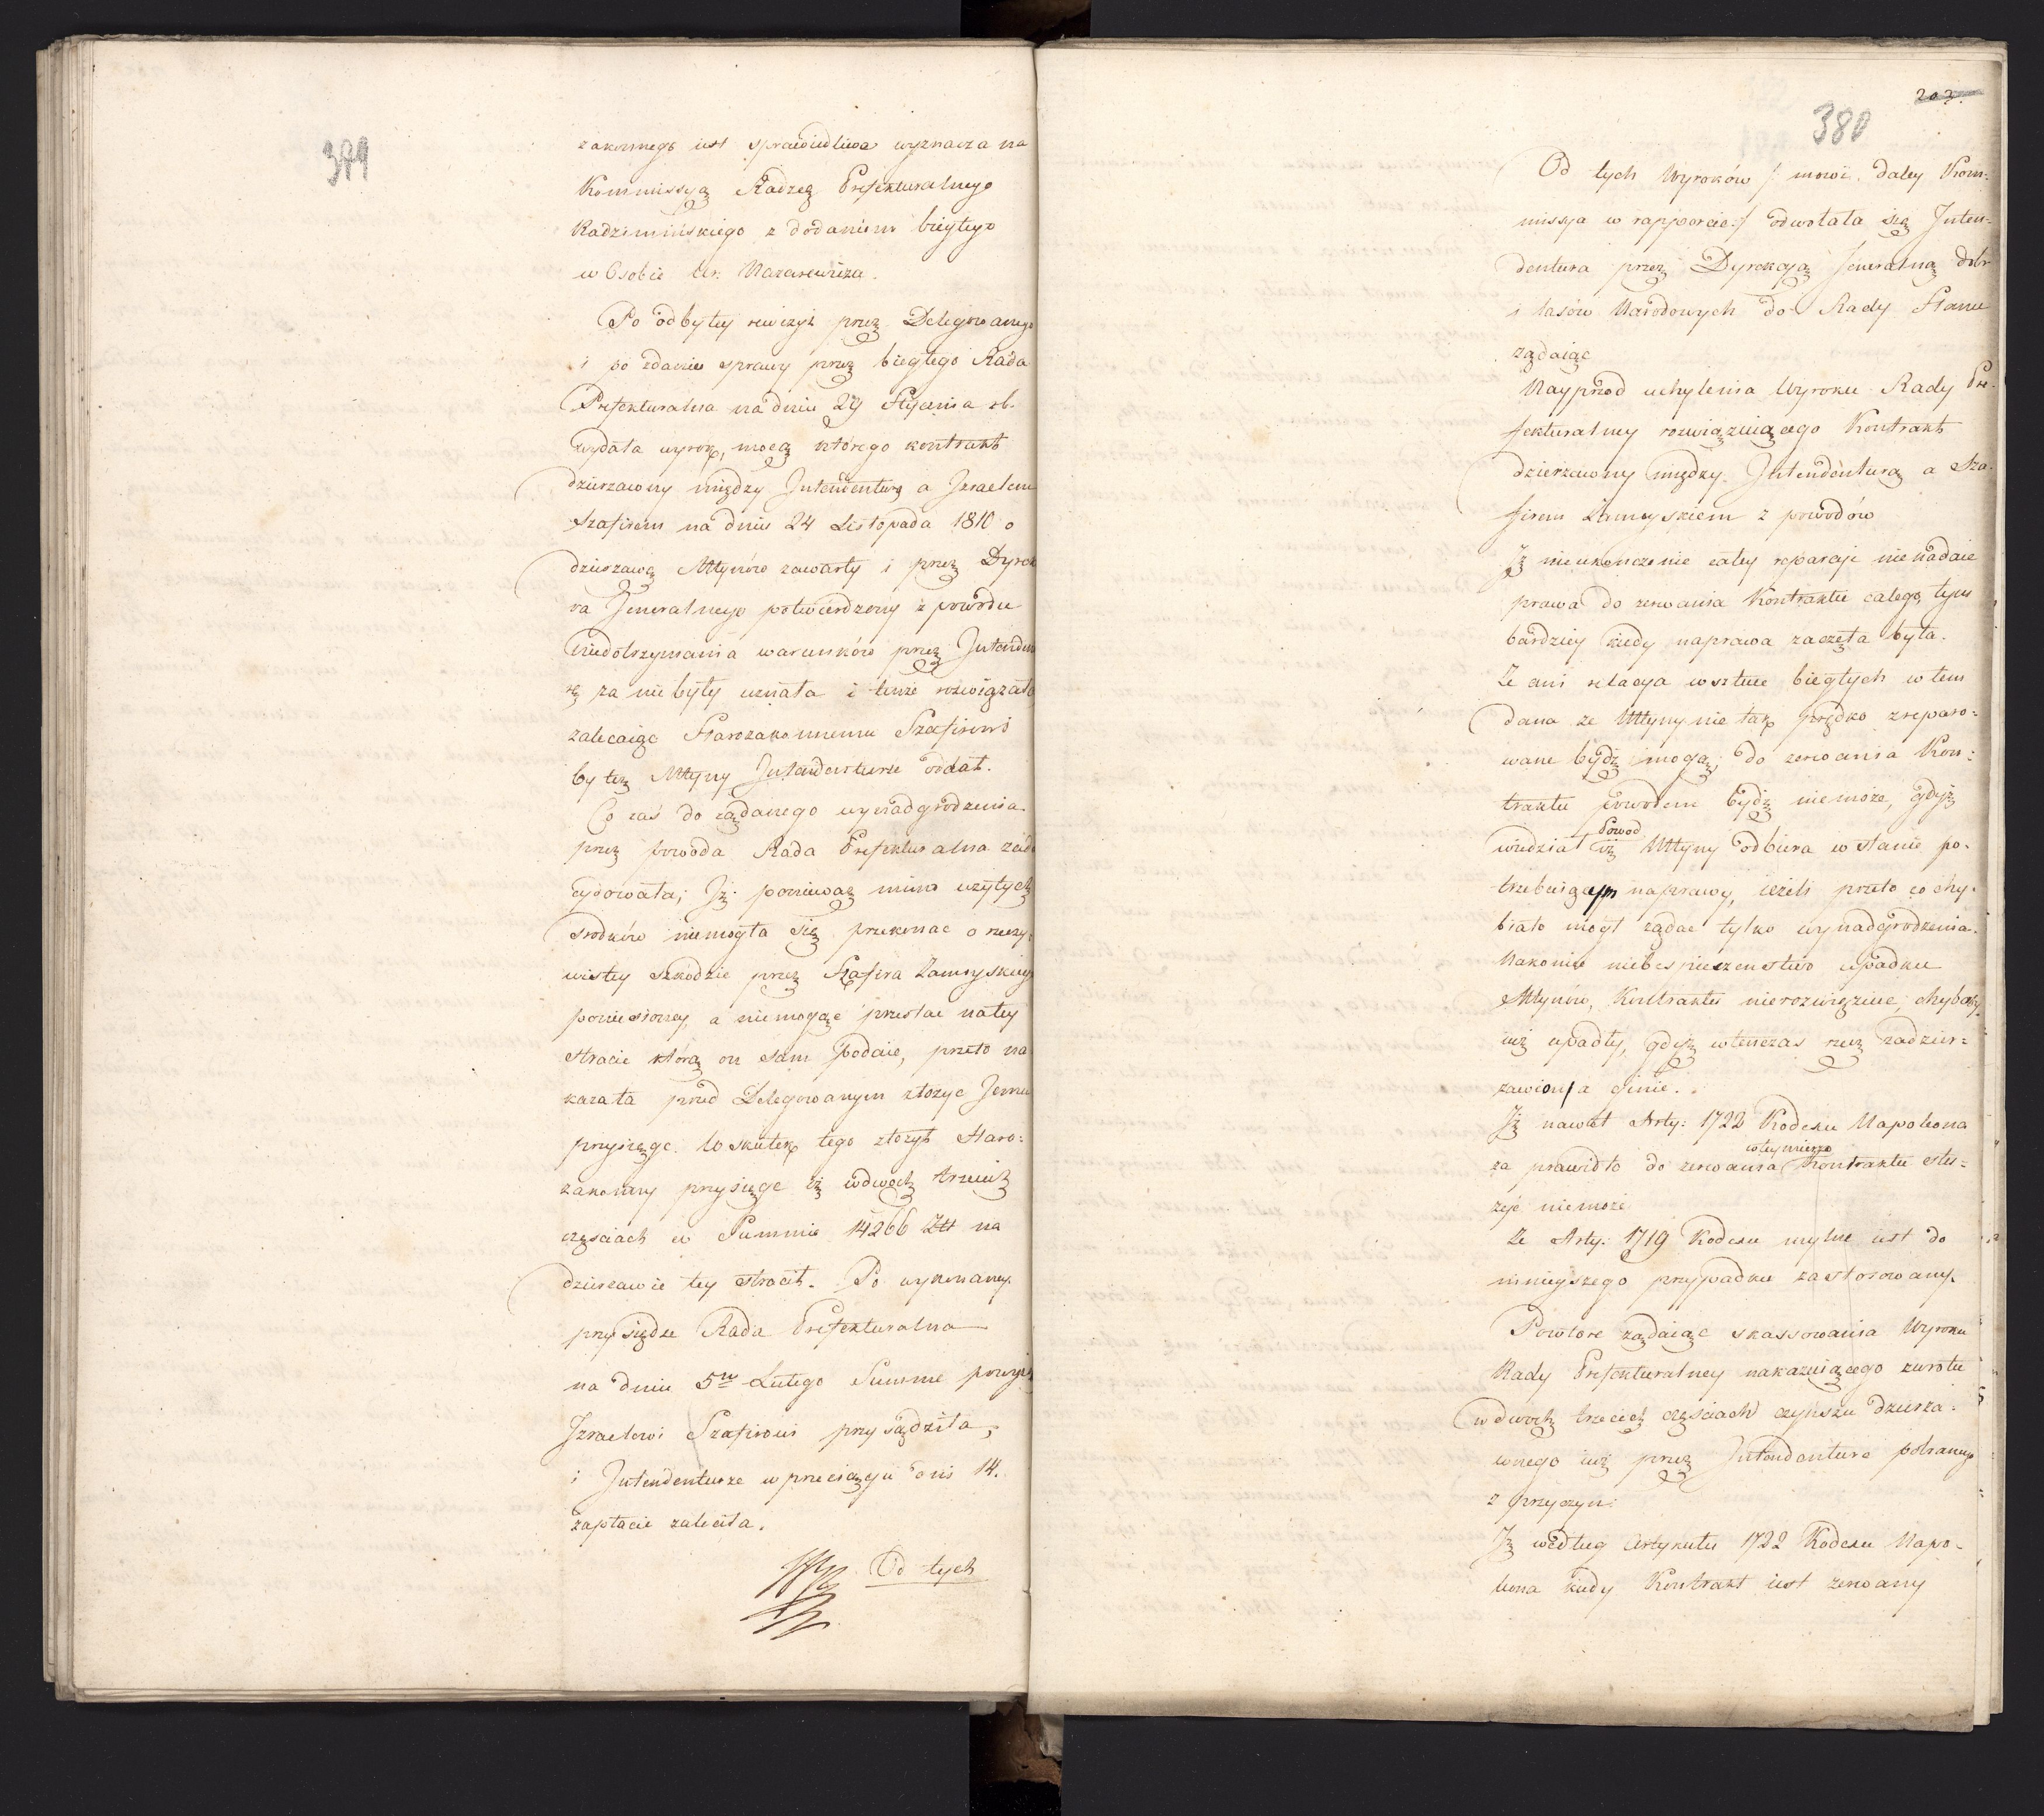 379
zakonnego iest sprawiedliwa wyznacza na
Kommissyą Radzcę Prefekturalnego
Radzimińskiego z dodaniem biegłego
w Osobie Ur. Nazarewicza.
Po odbytey rewizyi przez Delegowanego
i po zdaniu sprawy przez biegłego Rada
Prefekturalna na dniu 29 Stycznia rb.
wydała wyrok, mocą którego kontrakt
dzierzawny między Intendenturą a Izraelem
Szafirem na dniu 24 Listopada 1810 o
dzierzawę Młynów zawarty i przez Dyrek
ra Jeneralnego potwierdzony z powodu
niedotrzymania warunków przez Intendentu
rę za niebyły uznała i tenże rozwiązała
zalecaiąc Starozakonnemu Szafirowi
by też Młyny Intendenturze oddał.
Co zaś do żądanego wynadgrodzenia
przez powoda Rada Prefekturalna zade
cydowała; Iż ponieważ mimo użytych
srodków niemogła się przekonać o rzeczy=
wistey szkodzie przez Szafira Zamoyskiego
poniesioney, a niemogąc przestać na tey
stracie którą on sam podaie, przeto na
kazała przed Delegowanym złożyć Jemu
przysięgę. W skutek tego złożył Staro=
zakonny przysięgę iż w dwóch trzecich
częściach w Summie 14266 Złł na
dzierżawie tey stracił. Po wykonaney
przysiędze Rada Prefekturalna
na dniu 5m Lutego Summę powyż
Izraelowi Szafirowi przysądziła,
i Intendenturze w przeciągu dni 14.
zapłacić zaleciła.
Od tych
203.
380
Od tych Wyroków /: mówi daley Kom=
missya w rapporcie :/ odwołała się Inten=
dentura przez Dyrekcyą Jeneralną dobr
i lasów Narodowych do Rady Stanu
żądaiąc
Nayprzód uchylenia Wyroku Rady Pre=
fekturalney rozwiązuiącego Kontrakt
dzierzawny między Intendenturą a Sza=
firem Zamoyskiem z powodów
Iż nieukończenie całey reparacyi nie nadaie
prawa do zerwania Kontraktu całego, tym
bardziey kiedy naprawa zaczęta była.
Że ani relacya w sztuce biegłych w tem
dana że Młyny nie tak prędko zreparo=
wane bydź mogą; do zerwania Kon=
traktu powodem bydź niemoże, gdyż
Powod
wiedział iż Młyny odbiera w stanie po=
trzebuiącym naprawy, ieżeli przeto co chy=
biało mógł żądać tylko wynadgrodzenia.
Nakoniec niebespieczenstwo upadku
Młynów, Kontraktu nierozwięzuie, chybaby
iuż upadły, gdyż wtenczas rzecz zadzier=
żawiona ginie.
Iż nawet Arty: 1722 Kodexu Napoleona
w tey mierze
za prawidło do zerwania Kontraktu słu=
żyć niemoże
Że Arty: 1719 Kodexu mylnie iest do
ninieyszego przypadku zastosowany.
Powtóre żądaiąc skassowania Wyroku
Rady Prefekturalney nakazuiącego zwrotu
w dwóch trzecich częściach czynszu dzierża=
wnego iuż przez Intendenturę pobranego
z przyczyn:
Iż według Artykułu 1722 Kodexu Napo=
leona kiedy Kontrakt iest zerwany